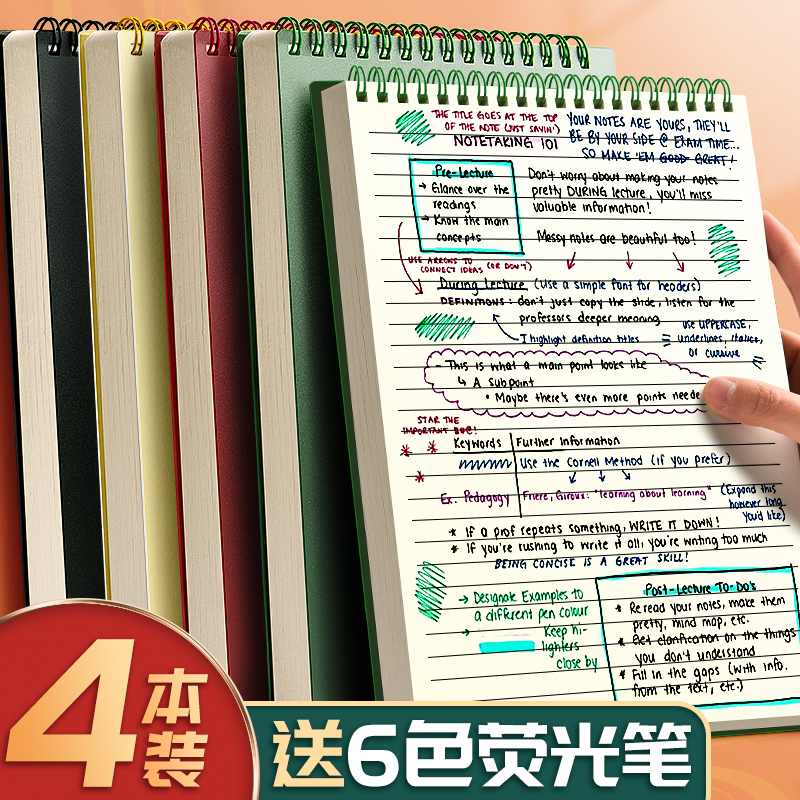 THE TITLE GOES AT THE TOP
OF THE NOTE (JUST SAYIN')
NOTETAKING 101
YOUR NOTES ARE YOURS, THEY'LL
BE BY YOUR SIDE @ EXAM TIME...
SO MAKE 'EM GOOD GREAT!
Pre-Lecture
→ Glance over the
readings
→ Know the main
concepts
Don't worry about making your notes
pretty DURING lecture, you'll miss
valuable information!
Messy notes are beautiful too!
USE ARROWS TO
CONNECT IDEAS (OR DON'T)
During Lecture (Use a simple font for headers)
DEFINITIONS: don't just copy the slide, listen for the
professors deeper meaning
I highlight definition titles
use UPPERCASE,
underlines, italics,
or cursive
- This is what a main point looks like
↳ A Subpoint
• Maybe there's even more points neede
STAR THE
IMPORTANT
Keywords
Further Information
Use the Cornell Method (if you prefer)
Ex. Pedagogy
Friere, Giroux: "learning about learning"
(Expand this
however long
you'd like)
* If a prof repeats something, WRITE IT DOWN!
* If you're rushing to write it all, you're writing too much
BEING CONCISE IS A GREAT SKILL!
→ Designate Examples to
a different pen colour
→ Keep hi-
lighters
close by
Post-Lecture To-Do's
* Re read your notes, make them
pretty, mind map, etc.
* Get clarification on the things
you don't understand
* Fill in the gaps (with info.
from the text, etc.)
4本装
送6色荧光笔